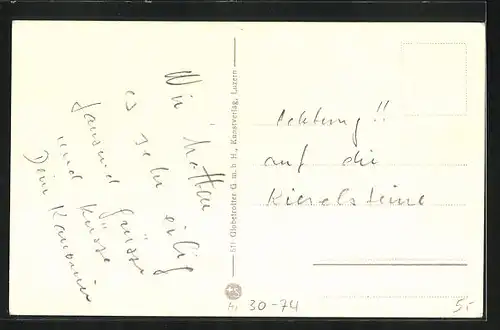 Wir hatten
es sehr eilig
tausend Grüsse
und Küsse
Dein
611 Globetrotter G. m. b. H., Kunstverlag, Luzern
Achtung!!
auf die
Kieselsteine
30-74
5.-